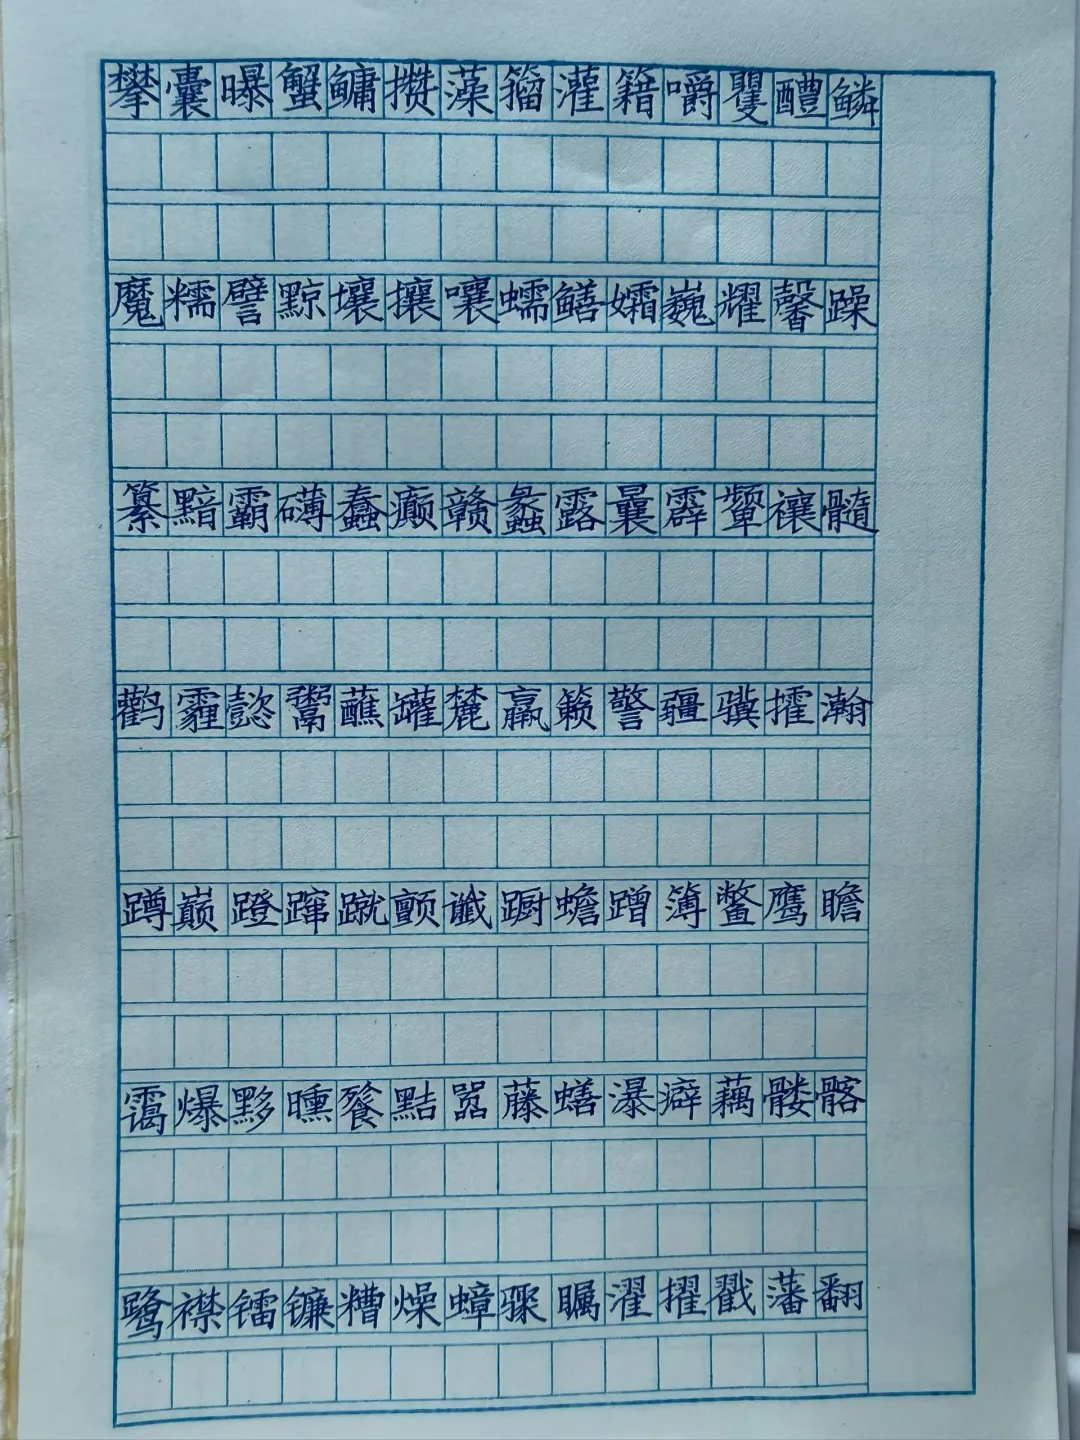 攀囊曝蟹鳙攒藻籀灌籍嚼矍醴鳞
魔糯譬黥壤攘嚷蠕鳝孀巍耀馨躁
纂黯霸礴蠢癫赣蠡露曩霹颦禳髓
鹳霾懿鬻蘸罐麓赢籁警疆骥擂瀚
蹲巅蹬蹿蹴颤谶蹰蟾蹭簿鳖鹰瞻
霭爆黟曛飧黠嚣藤蟮瀑癖藕髅髂
鹭襟镭镰糟燥蟑骤瞩濯擢戳藩翻